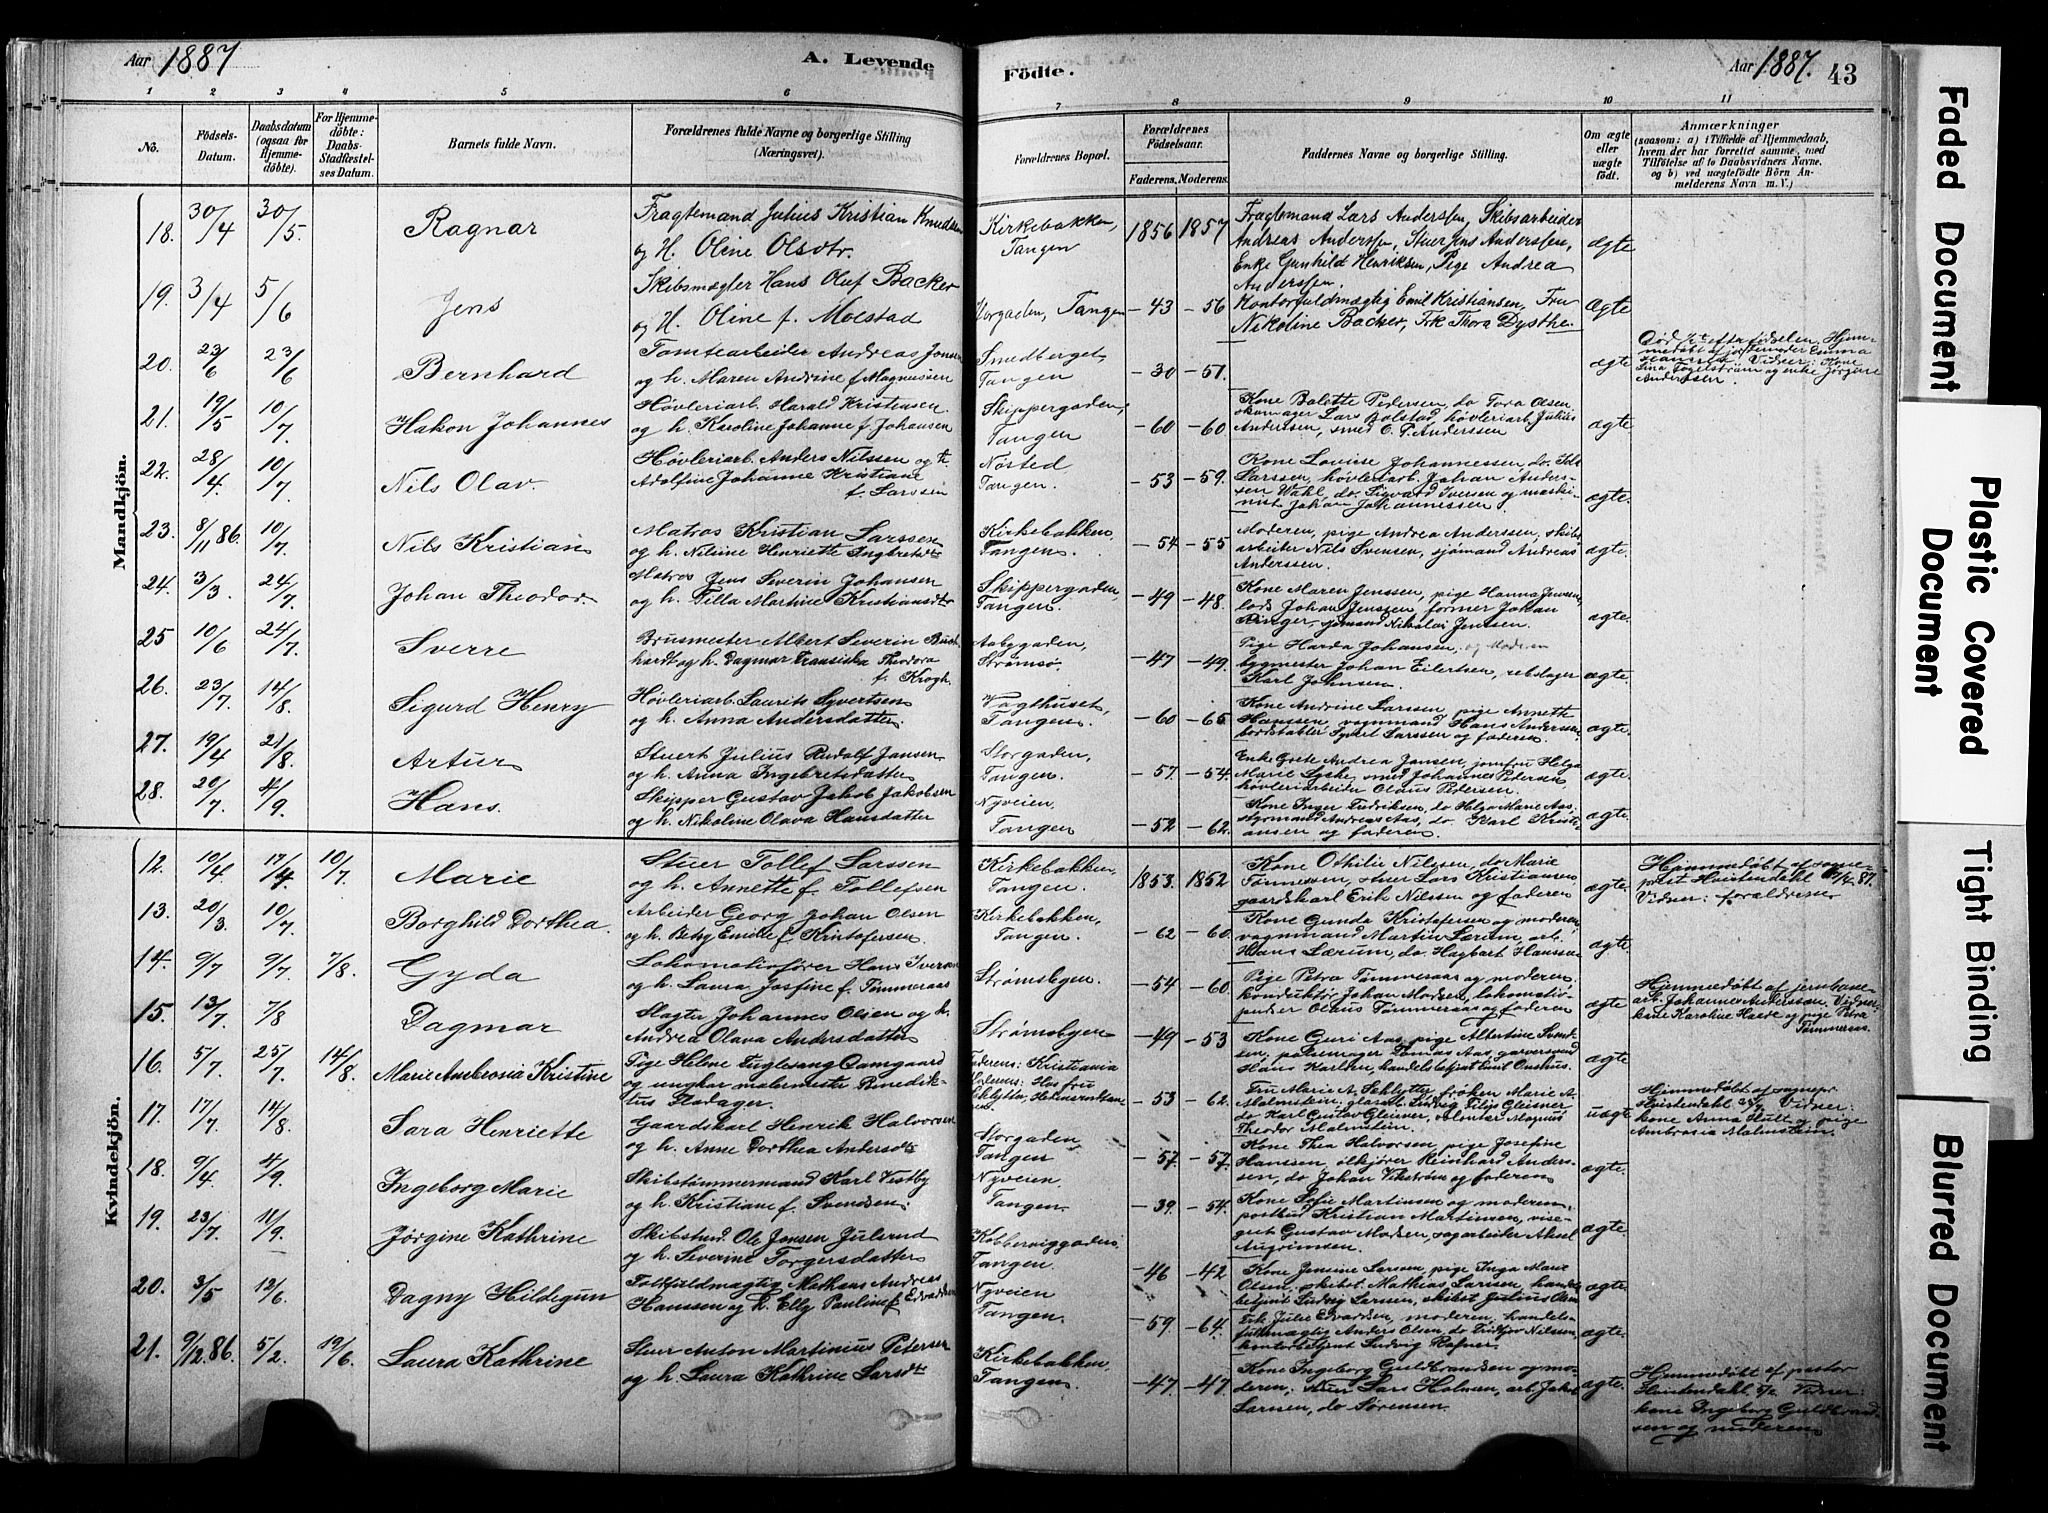 Aar 1887
A. Levende
Födte.
Aar 1887.
43
1 2 3 4 5 6 7 8 9 10 11
No.
Födsels-
Datum.
Daabsdatum
(ogsaa for
Hjemme-
döbte).
For Hjemme-
döbte:
Daabs-
Stadfæstel-
ses Datum.
Barnets fulde Navn.
Forældrenes fulde Navne og borgerlige Stilling
(Næringsvei).
Forældrenes Bopæl.
Forældrenes
Födselsaar.
Faderens. Moderens.
Faddernes Navne og borgerlige Stilling.
Om ægte
eller
uægte
födt.
Anmærkninger
(saasom: a) i Tilfælde af Hjemmedaab,
hvem der har forrettet samme, med
Tilföielse af to Daabsvidners Navne,
og b) ved uægtefödte Börn An-
melderens Navn m. V.)
Mandkjön.
18. 30/4 30/5. Ragnar
Fragtemand Julius Kristian Knudsen
og H. Oline Olsdtr.
Kirkebakken,
Tangen
1856 1857
Fragtemand Lars Anderssen, Skibsarbeider
Andreas Anderssen, Stuer Jens Anderssen,
Enke Gunhild Henriksen, Pige Andrea
Anderssen.
ægte
19. 3/4 5/6 Jens
Skibsmægler Hans Oluf Backer
og H. Oline f. Moestad
Tangen
-43 -56
Kontorfuldmægtig Emil Kristiansen, Fru
Nikoline Backer, Frk Thora Dysthe.
Ægte
20. 23/6 23/6 Bernhard
Tomtearbeider Andreas Jonsen
og h. Maren Andrine f. Magnussen
Smedberget
Tangen
-30 -51.
ægte
Anderssen.
21. 19/5 10/7 Hakon Johannes
Høvleriarb. Harald Kristensen
og h. Karoline Johanne f. Johansen
Skippergaden,
Tangen
-60 -60
Kone Bolette Pedersen, do Tora Olsen
skomager Lars Bolstad, høvleriarb. Julius
Anderssen, smed C. P. Anderssen
ægte
22. 28/4 10/7 Nils Olav.
Høvleriarb. Anders Nilssen og h.
Adolfine Johanne Kristiane
f. Larssen
Nøsted
Tangen.
-53 -59.
Kone Lovise Johannessen, do.
Larssen, høvleriarb. Johan Anders-
sen Wahl, do. Sigvard Iversen og maski-
nist Johan Johannessen
ægte.
23. 8/11 86. 10/7 Nils Kristian
Matros Kristian Larssen
og h. Nilsine Henriette
Kirkebakken
Tangen.
-54 -55
Moderen, pige Andrea Anderssen, skibs-
arbeiter Nils Svensen, sjømand Andreas
Anderssen.
ægte.
24. 3/3. 24/7 Johan Theodor.
Matros Jens Severin Johansen
og h. Tilla Martine Kristiansdtr
Skippergaden
Tangen.
-49 -48.
Kone Maren Jenssen, pige Hanna Jensen,
lods Johan Jenssen, former Johan
Ringer, sjømand Nikolai Jenssen.
ægte.
25 10/6 24/7. Sverre
Albert Severin
hardt og h. Dagmar Fransiska Theodora
f. Krogh.
Aabygaden,
Strømsø
-47 -49.
Pige Harda Johansen, og Moderen
bygmester Johan Eilertsen, rebslager
Karl Johnsen.
ægte.
26. 23/7 14/8. Sigurd Henry
Høvleriarb. Laurits Syvertsen
og h. Anna Andersdatter
Vagthuset,
Tangen
-60 -65.
Kone Andrine Larssen, pige Annette
Hanssen, vognmand Hans Anderssen,
bordstabler Syvert Larssen og faderen.
ægte.
27. 19/4 21/8. Artur
Stuert Julius Rudolf Jansen
og h. Anna Ingebretsdatter
Storgaden,
Tangen.
-57 -54.
Enke Grete Andrea Jansen, jomfru Helga
Marie Lyshe, smed Johannes Pedersen
høvleriarbeider Olaus Pedersen.
ægte.
28. 20/7. 4/9. Hans.
Skipper Gustav Jakob Jakobsen
og h. Nikoline Olava Hansdatter
Nyveien
Tangen
-52 -62.
Kone Inger Fredriksen, do Helga Marie Aas.
styrmand Andreas Aas, do. Karl Kristi-
ansen og faderen.
ægte.
Kvindekjön.
12. 10/4 17/4 10/7 Marie
Stuer Tollef Larssen
og h. Annette f. Tollefsen
Kirkebakken,
Tangen.
1853. 1852
Kone Othilie Nilssen, do Marie
Tønnessen, stuer Lars Kristiansen
gaardskarl Erik Nilssen og faderen
ægte.
Hjemmedøbt af sogne-
prest Hvistendahl 17/4 87.
Vidner: forældrene
13. 20/3 10/7 Borghild Dorthea.
Arbeider Georg Johan Olsen
og h. Betsy Emilie f. Kristofersen.
Kirkebakken,
Tangen.
-62 -60.
Kone Gunda Kristofersen og moderen,
vognmand Martin Lærum, arb.
Hans Lærum, do. Hagbart Hansen
ægte.
14. 9/7 9/7. 7/8. Gyda
Lokomotivfører Hans Iversen
og h. Laura Josfine f. Tømmeraas
Strømsbyen.
-54 -60.
Pige Petra Tømmeraas og moderen
konduktør Johan Madsen, lokomotiv-
pudser Olaus Tømmeraas og faderen
ægte
Hjemmedøbt af jernbane-
arb. Johannes Anderssen. Vidner
kone Karoline Haede og pige Petra
Tømmeraas.
15. 13/7 7/8 Dagmar
Slagter Johannes Olsen og h.
Andrea Olava Andersdatter
Strømsbyen
-49 -53
Kone Guri Aas, pige Albertine Svend-
sen, pølsemager Tomas Aas, garversvend
Hans Karlsen, handelsbetjent Emil
ægte
16. 5/7. 25/7 14/8. Marie Ambrosia Kristine
Pige Helene Fuglesang Damgaard
og ungkar malermester Benedik-
tus Hodager.
Faderens: Kristiania
Moderens: Hos fru
-53 -62.
Fru Marie A. Schlytter, frøken Marie A.
Malmstein, Ludvig Filip Gleisner
do Karl Gustav Gleisner, volontør Magnus
Theodor Malmstein.
uægte
Hjemmedøbt af sognepr.
Hvistendahl. Vidner:
kone Anna Hult og pige
Ambrosia Malmstein.
17. 17/7. 14/8. Sara Henriette
Gaardskarl Henrik Halvorsen
og h. Anne Dorthea Andersdtr
Storgaden
Tangen
-57. -57.
Kone Thea Halvorsen, pige Josefine
Hanssen, ølkjører Reinhard Anders-
sen, do Johan Vikstrøm og faderen
ægte.
18. 9/4 4/9. Ingeborg Marie
Skibstømmermand Karl Vestby
og h. Kristiane f. Svendsen
Nyveien
Tangen.
-39. -54.
Kone Sofie Martinsen og moderen,
postbud Kristian Martinsen, vise-
gut Gustav Madsen, sagarbeider Aksel
ægte
19. 23/7. 11/9. Jørgine Kathrine
Skibstmd. Ole Jensen Julerud
og h. Severine Torgersdatter
Kobberviggaden
Tangen
-46 -42
Kone Jensine Larsen, pige Inga Marie
Olsen, skibst. Mathias Larsen, handels-
betjent Ludvig Larssen, skibst Julius Olsen
ægte
20. 3/5. 12/6. Dagny Hildegun
Toldfuldmægtig Mathias Andreas
Hanssen og h. Elly Pauline f. Edvardsen
Nyveien
Tangen.
-59. -64.
Frk Julie Edvardsen, moderen, handels-
fuldmægtig Anders Olsen, do Fridtjov Nilsen,
kontorbetjent Ludvig Rafner.
ægte.
21. 9/12. 86. 5/2. 19/6. Laura Kathrine
Stuer Anton Martinius Petersen
og h. Laura Kathrine Larsdtr
Kirkebakken
Tangen.
-47. -47.
Kone Ingeborg Guldbrandsen og mo-
deren; stuer Lars Holmen, arb. Jakob
Larssen, do Sørensen.
ægte.
Hjemmedøbt af pastor
Hvistendahl, 5/2. Vidner:
kone Ingeborg Guldbrand-
sen og moderen
Faded Document
Plastic Covered
Document
Tight Binding
Blurred Document